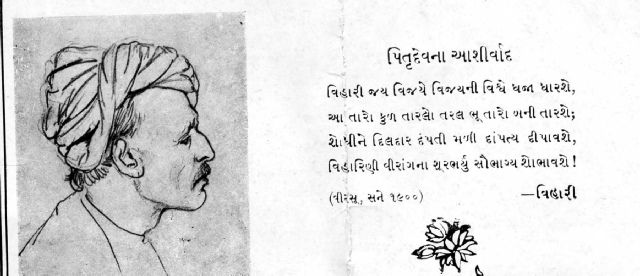 પિતૃદેવના આશીર્વાદ
વિહારી જય વિજયે વિજયની વિશ્વે ધજા ધારશે,
આ તારો કુળ તારલો તરલ ભૂ તારો બની તારશે;
શોધીને દિલદાર દંપતી મળી દાંપત્ય દીપાવશે,
વિહારિણી વીરાંગના શૂરભર્યું સૌભાગ્ય શોભાવશે !
(વીરસૂ, સને ૧૯૦૦)
—વિહારી